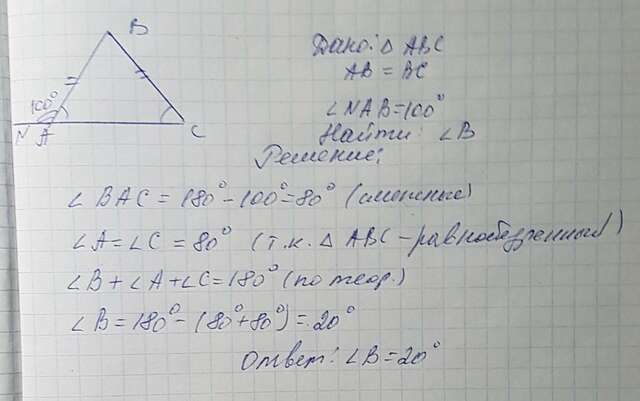 B
100°
N A
C
Дано: △ ABC
AB = BC
∠NAB=100°
Найти: ∠B
Решение:
∠ BAC = 180°-100°=80° (смежные)
∠A=∠C = 80° (т.к. △ ABC - равнобедренный)
∠B + ∠A+∠C=180° (по теор.)
∠B = 180° - (80°+80°) = 20°
Ответ: ∠B=20°